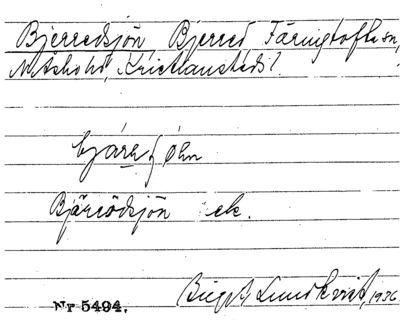 Bjerredsjön, Bjerred Färingtofta sn,
N. Åsbo hd, Kristianstads l.
bjárȩʃøn
Bjäröðsjön ek.
Birgit Lundkvist, 1936
Nr 5494.